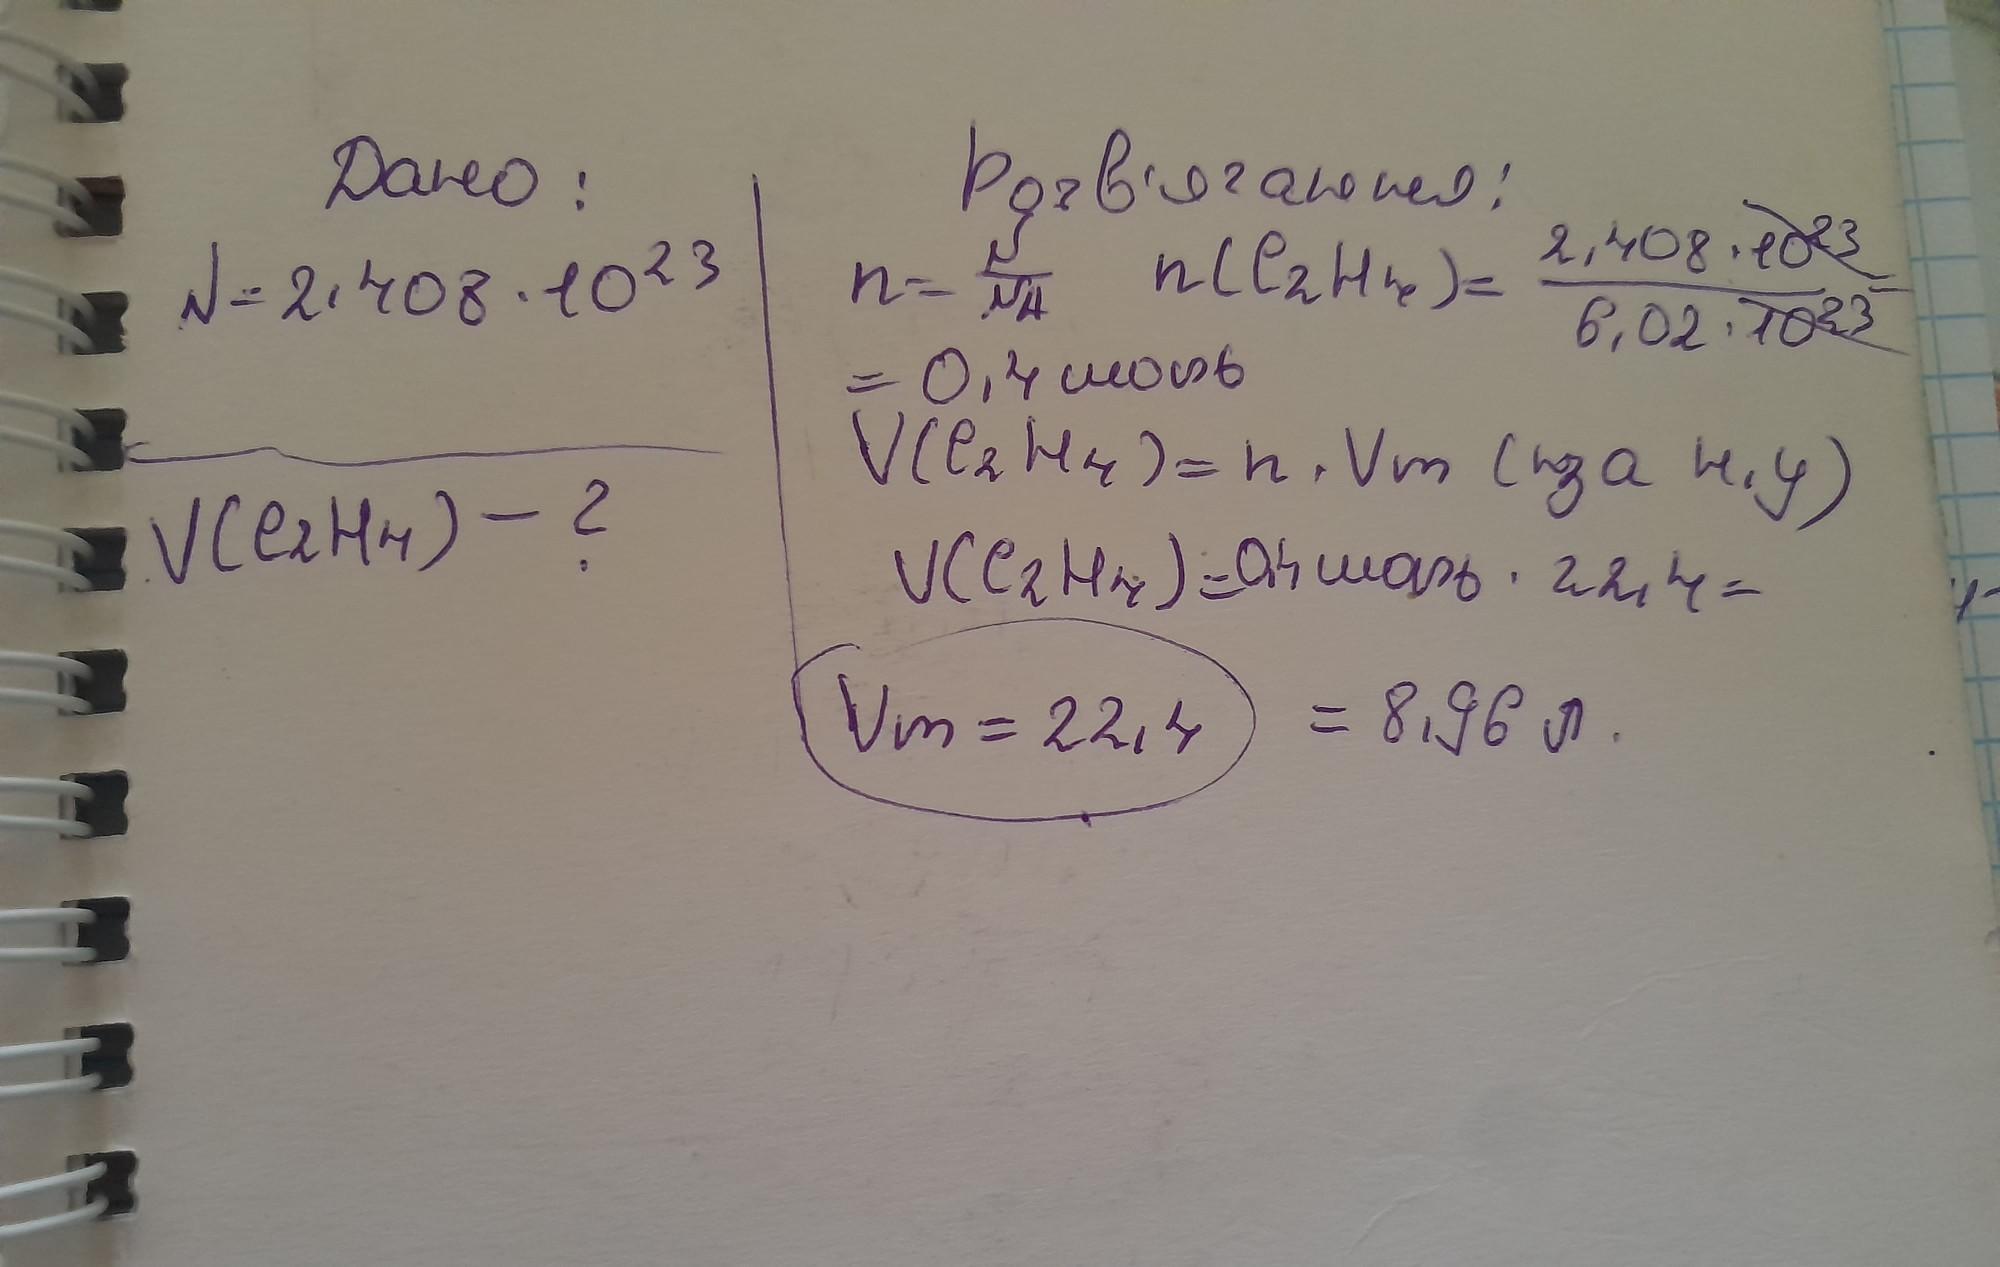 Дано:
N=2,408·10²³
V(C₂H₄) – ?
Розв'язання:
n = N/NA n(C₂H₄) = 2,408·10²³/6,02·10²³ =
= 0,4 моль
V(C₂H₄) = n · Vm (за н,у)
V(C₂H₄) = 0,4 моль · 22,4 =
Vm = 22,4 = 8,96 л.